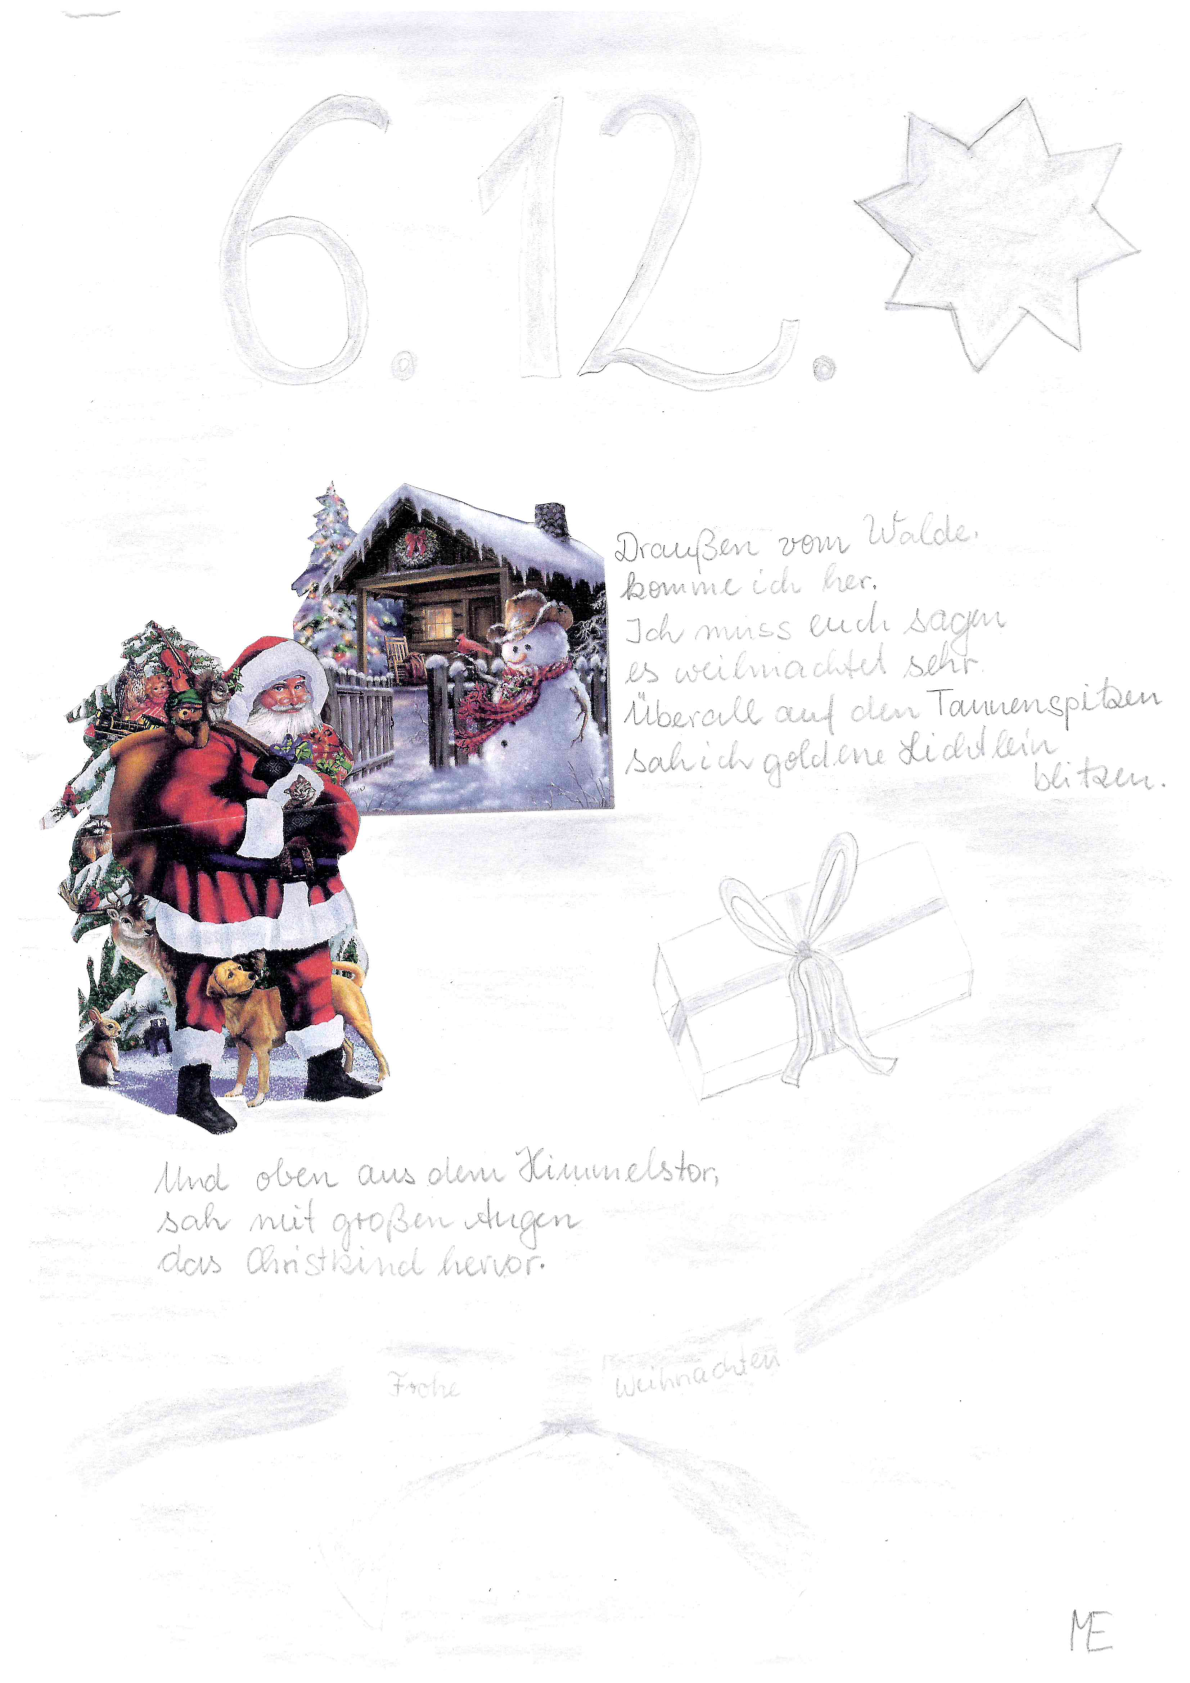 6.12.
Draußen vom Walde.
komme ich her.
Ich muss euch sagen
es weihnachtet sehr.
Überall auf den Tannenspitzen
sah ich goldene Lichtlein
blitzen.
Und oben aus dem Himmelstor,
sah mit großen Augen
das Christkind hervor.
Frohe Weihnachten
ME